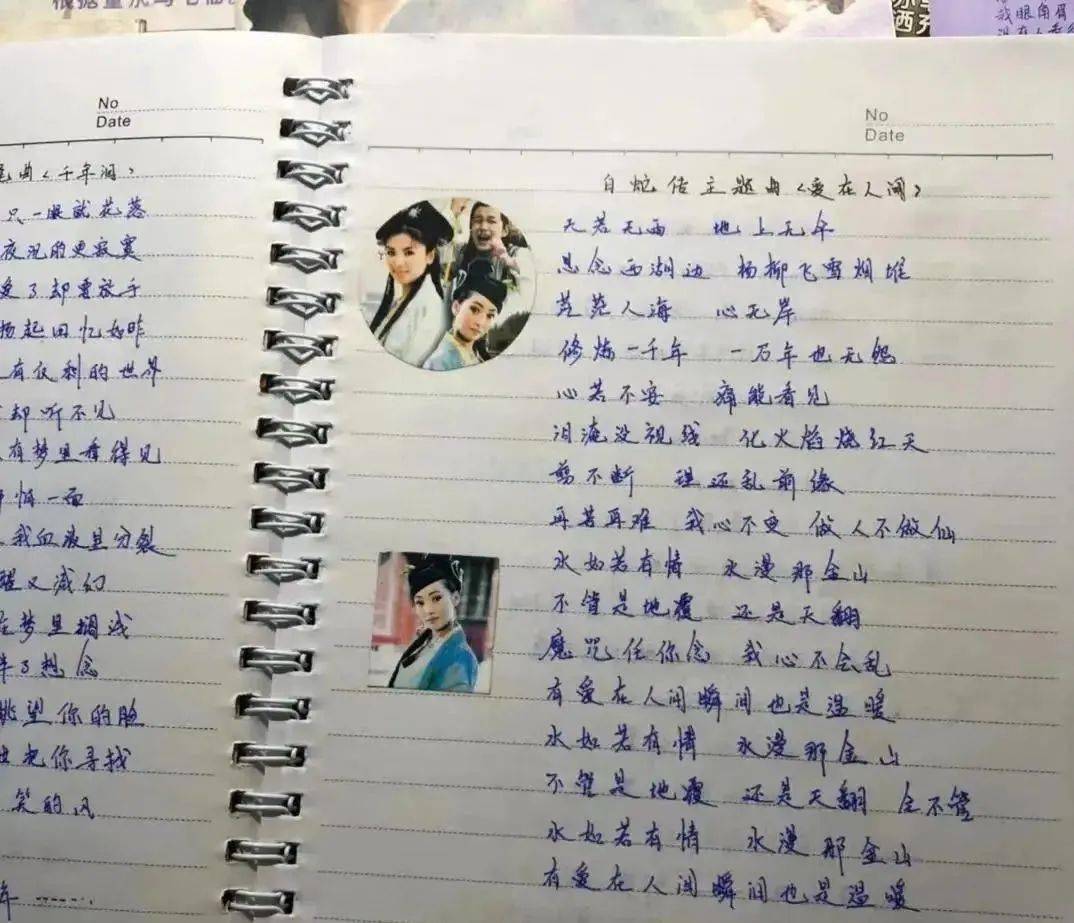 No
Date
尾曲《千年泪》
只一眼就花落
夜沉的更寂寞
爱了却要放手
扬起回忆如昨
有仅剩的世界
却听不见
有梦里看得见
悔一面
我血液里分裂
醒又减幻
在梦里搁浅
了想念
眺望你的脸
也把你寻找
笑的风
年……
No
Date
白蛇传主题曲《爱在人间》
天若无雨 地上无伞
思念西湖边 杨柳飞雪烟堆
茫茫人海 心无岸
修炼一千年 一万年也无怨
心若不安 痛能看见
泪淹没视线 化火焰烧红天
剪不断 理还乱前缘
再苦再难 我心不变 做人不做仙
水如若有情 水漫那金山
不管是地覆 还是天翻
魔咒任你念 我心不会乱
有爱在人间瞬间也是温暖
水如若有情 水漫那金山
不管是地覆 还是天翻 全不管
水如若有情 水漫那金山
有爱在人间瞬间也是温暖